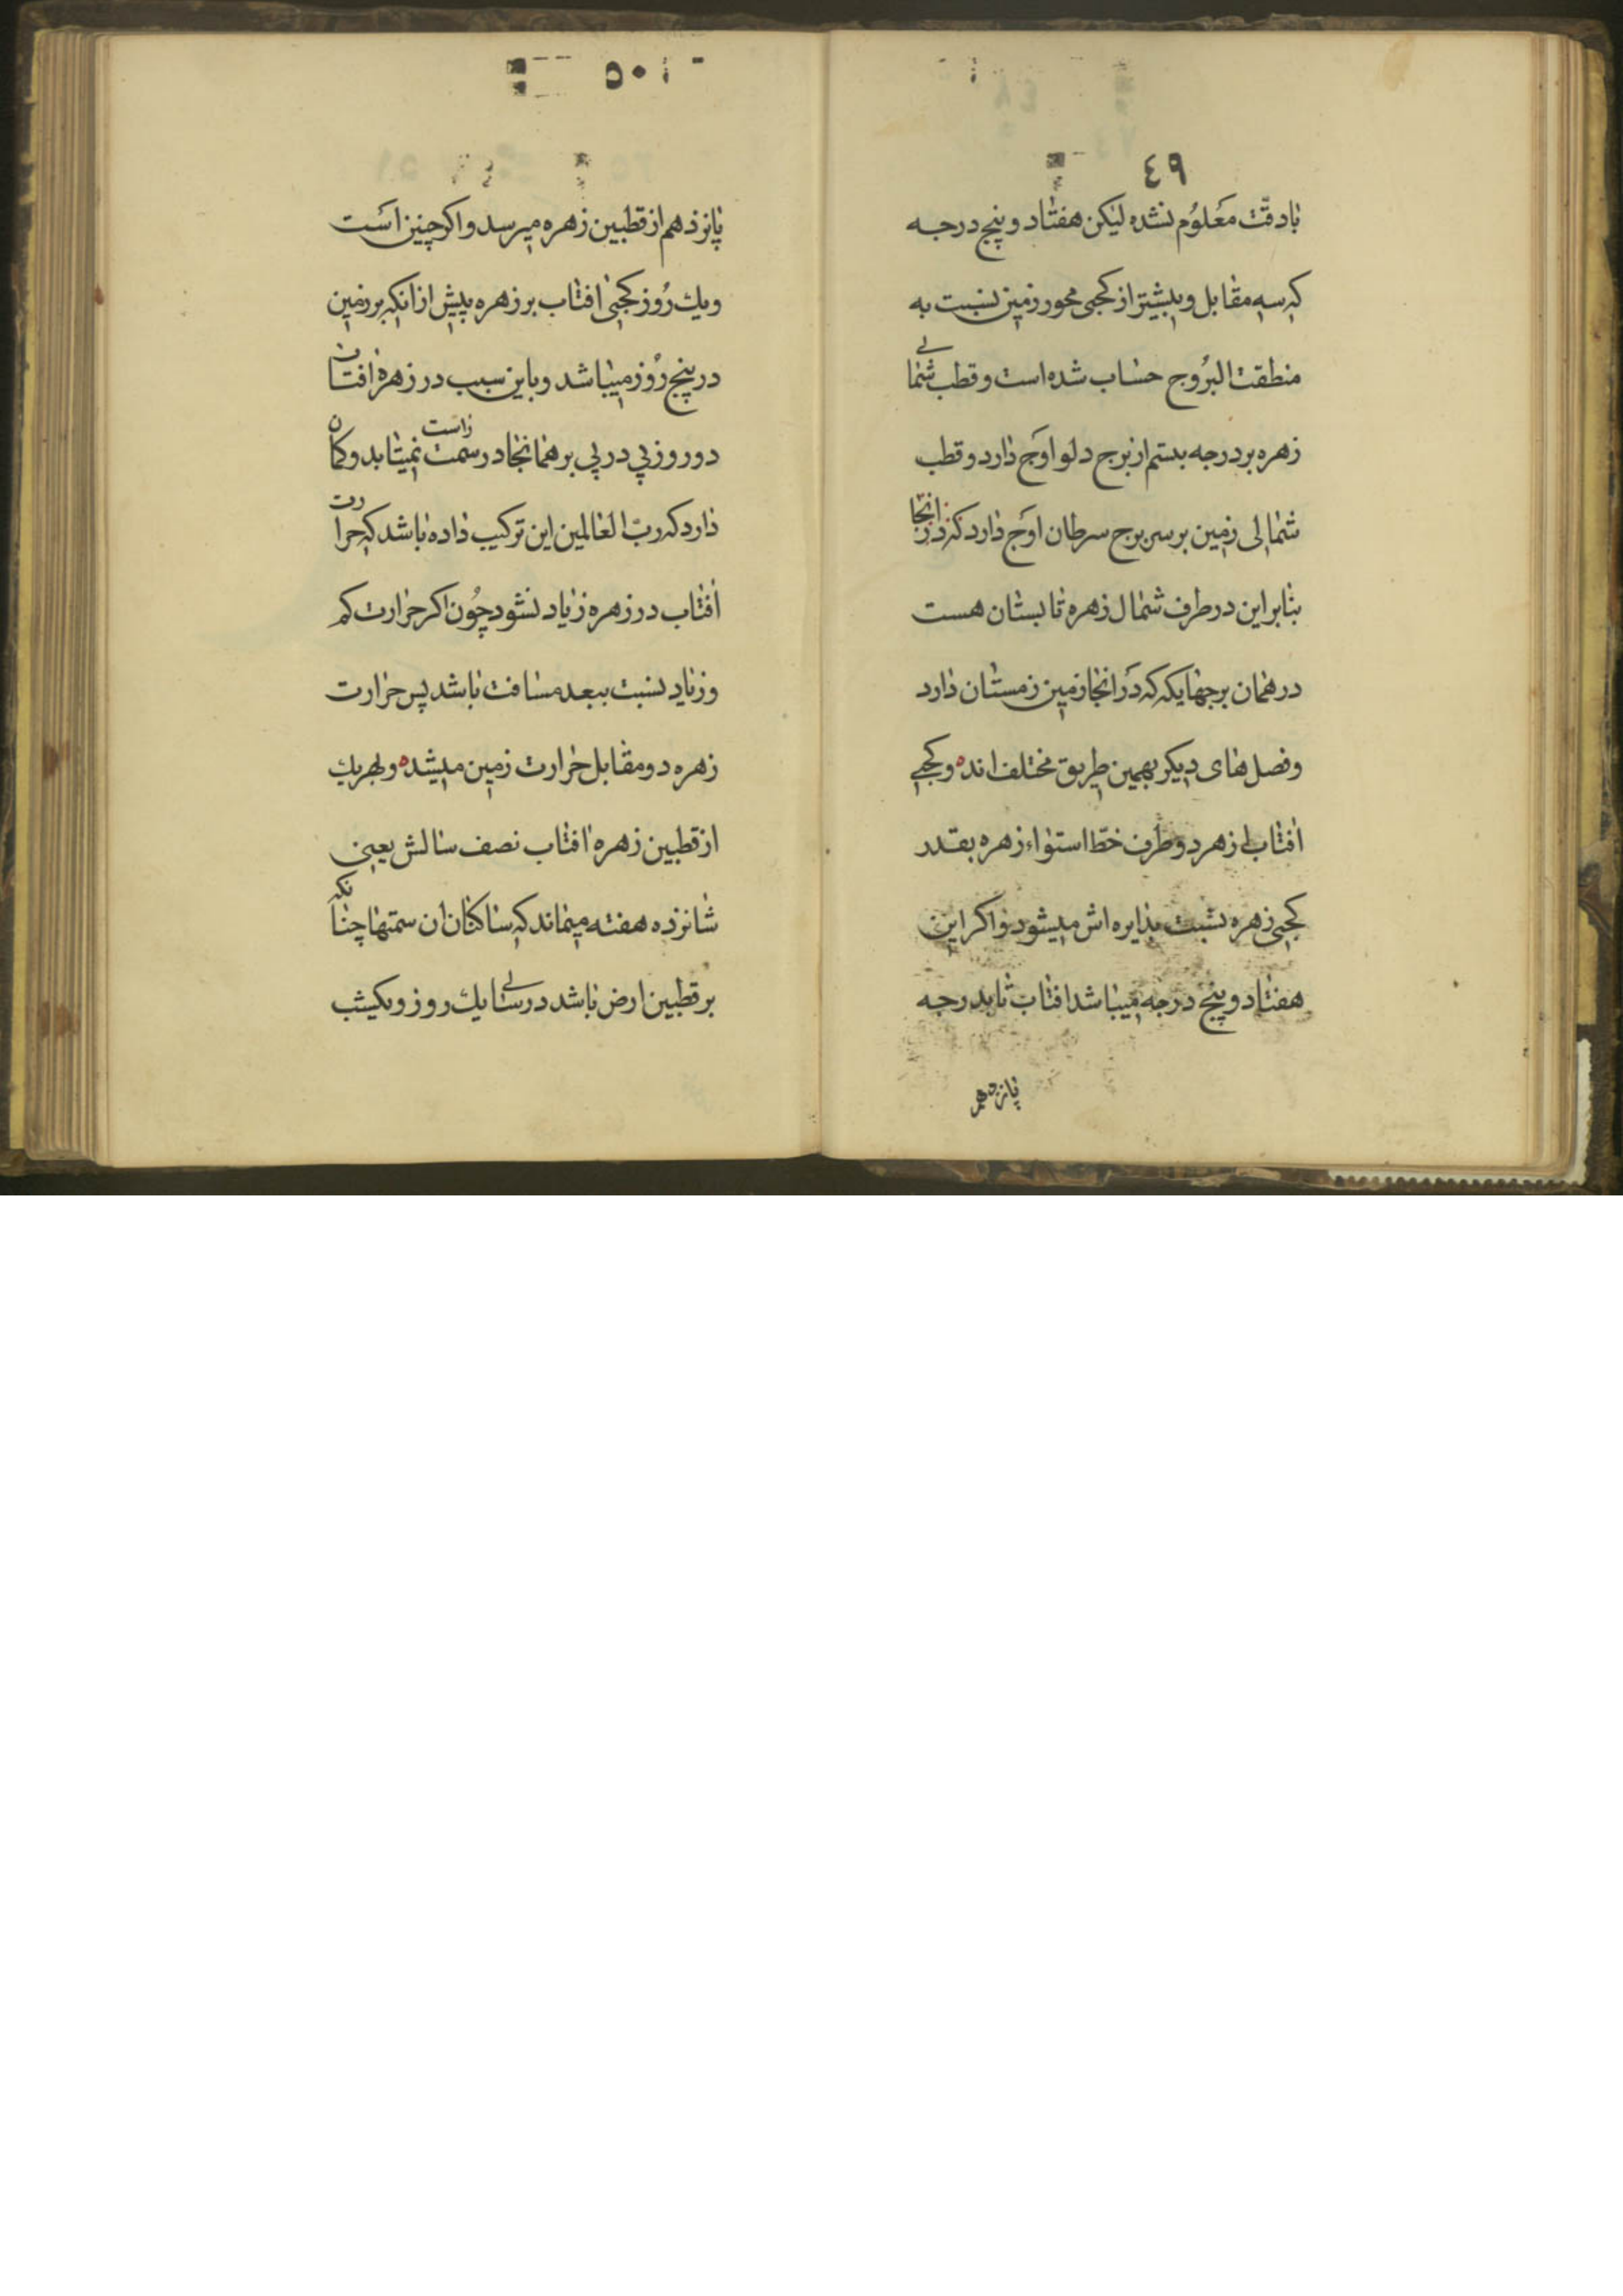 ٤٩
بادقّت معلوم نشده لیکن هفتاد و پنج درجه
که سه مقابل و بیشتر از کجی محور زمین نسبت به
منطقت البروج حساب شده است و قطب شمالی
زهره بر درجه بستم از برج دلو اوج دارد و قطب
شمالی زمین بر سر برج سرطان اوج دارد که در انجا
بنابراین در طرف شمال زهره تابستان هست
در همان برجهایکه که در انجا زمین زمستان دارد
و فصل های دیکر بهمین طریق مختلف اند ه و کجی
افتاب از زهر دو طرف خطّ استواء زهره بقدر
کجی زهره نسبت بدایره اش میشود و اکر این
هفتاد و پنج درجه میباشد افتاب تا بدرجه
پانزدهم
٥٠
پانزدهم از قطبین زهره میرسد و اکر چنین است
ویك روز کجی افتاب بر زهره پیش از انکه بر زمین
در پنج روز میباشد و باین سبب در زهره افتاب
دو روز پی در پی بر همانجا در سمت راست نمیتابد و کمان
دارد که ربّ العالمین این ترکیب داده باشد که حرارت
افتاب در زهره زیاد نشود چون اکر حرارت کم
و زیاد نسبت ببعد مسافت باشد پس حرارت
زهره دو مقابل حرارت زمین میشد ه و بهر یك
از قطبین زهره افتاب نصف سالش یعنی
شانزده هفته میماند که ساکنان ان سمتها چنانکه
بر قطبین ارض باشد در سالی یك روز و یکشب